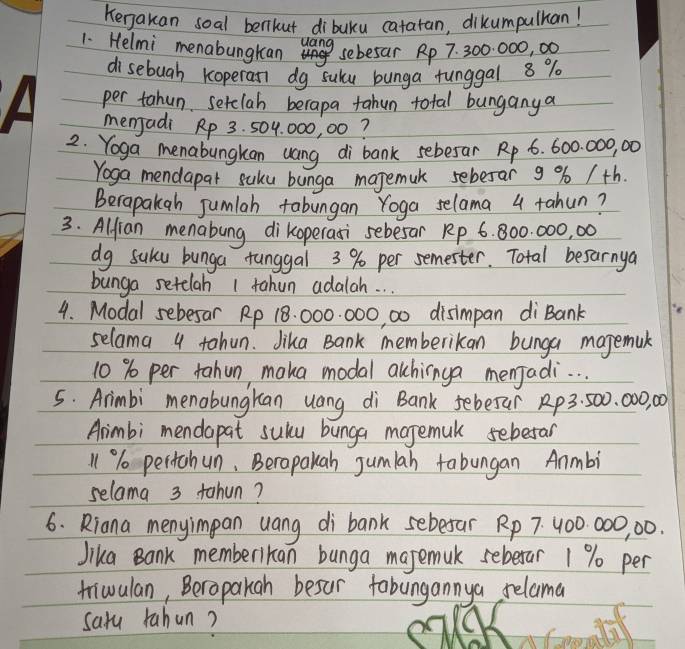 Kerjakan soal berikut dibuku catatan, dikumpulkan!
1. Helmi menabungkan uang sebesar Rp 7.300.000,00
disebuah koperasi dg suku bunga tunggal 8 %
per tahun setelah berapa tahun total bunganya
menjadi Rp 3.504.000,00 ?
2. Yoga menabungkan uang di bank sebesar Rp 6.600.000,00
Yoga mendapat suku bunga majemuk sebesar 9 % / th.
Berapakah jumlah tabungan Yoga selama 4 tahun?
3. Alfian menabung di koperasi sebesar Rp 6.800.000,00
dg suku bunga tunggal 3 % per semester. Total besarnya
bunga setelah 1 tahun adalah ...
4. Modal sebesar Rp 18.000.000,00 disimpan di Bank
selama 4 tahun. Jika Bank memberikan bunga majemuk
10 % per tahun, maka modal akhirnya menjadi ...
5. Arimbi menabungkan uang di Bank sebesar Rp3.500.000,00
Arimbi mendapat suku bunga majemuk sebesar
11 % pertahun. Berapakah jumlah tabungan Arimbi
selama 3 tahun?
6. Riana menyimpan uang di bank sebesar Rp 7.400.000,00.
Jika Bank memberikan bunga majemuk sebesar 1 % per
triwulan, Berapakah besar tabungannya selama
satu tahun?
SMK Kreatif